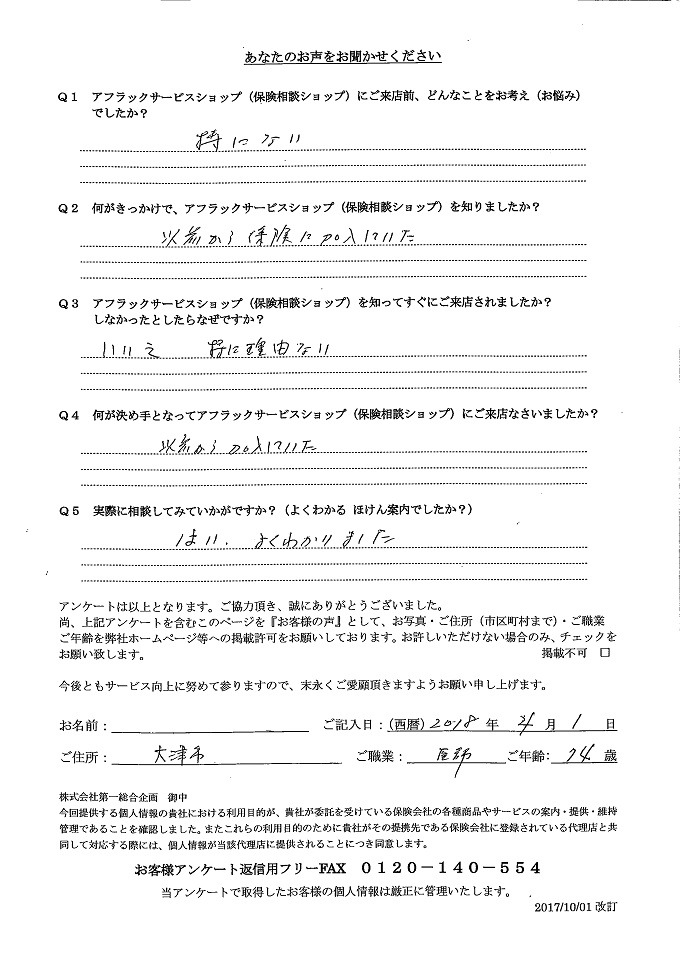 あなたのお声をお聞かせください
Q1 アフラックサービスショップ(保険相談ショップ)にご来店前、どんなことをお考え(お悩み)
でしたか?
特にない
Q2 何がきっかけで、アフラックサービスショップ(保険相談ショップ)を知りましたか?
以前から保険に加入していた
Q3 アフラックサービスショップ(保険相談ショップ)を知ってすぐにご来店されましたか?
しなかったとしたらなぜですか?
いいえ 特に理由ない
Q4 何が決め手となってアフラックサービスショップ(保険相談ショップ)にご来店なさいましたか?
以前から加入していた
Q5 実際に相談してみていかがですか?(よくわかる ほけん案内でしたか?)
はい. よくわかりました
アンケートは以上となります。ご協力頂き、誠にありがとうございました。
尚、上記アンケートを含むこのページを『お客様の声』として、お写真・ご住所(市区町村まで)・ご職業
ご年齢を弊社ホームページ等への掲載許可をお願いしております。お許しいただけない場合のみ、チェックを
お願い致します。 掲載不可 □
今後ともサービス向上に努めて参りますので、末永くご愛願頂きますようお願い申し上げます。
お名前: ご記入日:(西暦)2018 年 4 月 1 日
ご住所: 大津市 ご職業: 医師 ご年齢: 74 歳
株式会社第一総合企画 御中
今回提供する個人情報の貴社における利用目的が、貴社が委託を受けている保険会社の各種商品やサービスの案内・提供・維持
管理であることを確認しました。またこれらの利用目的のために貴社がその提携先である保険会社に登録されている代理店と共
同して対応する際には、個人情報が当該代理店に提供されることにつき同意します。
お客様アンケート返信用フリーFAX 0120-140-554
当アンケートで取得したお客様の個人情報は厳正に管理いたします。
2017/10/01 改訂